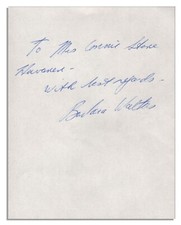 To Mrs Connie Stone
with best regards -
Barbara Walters